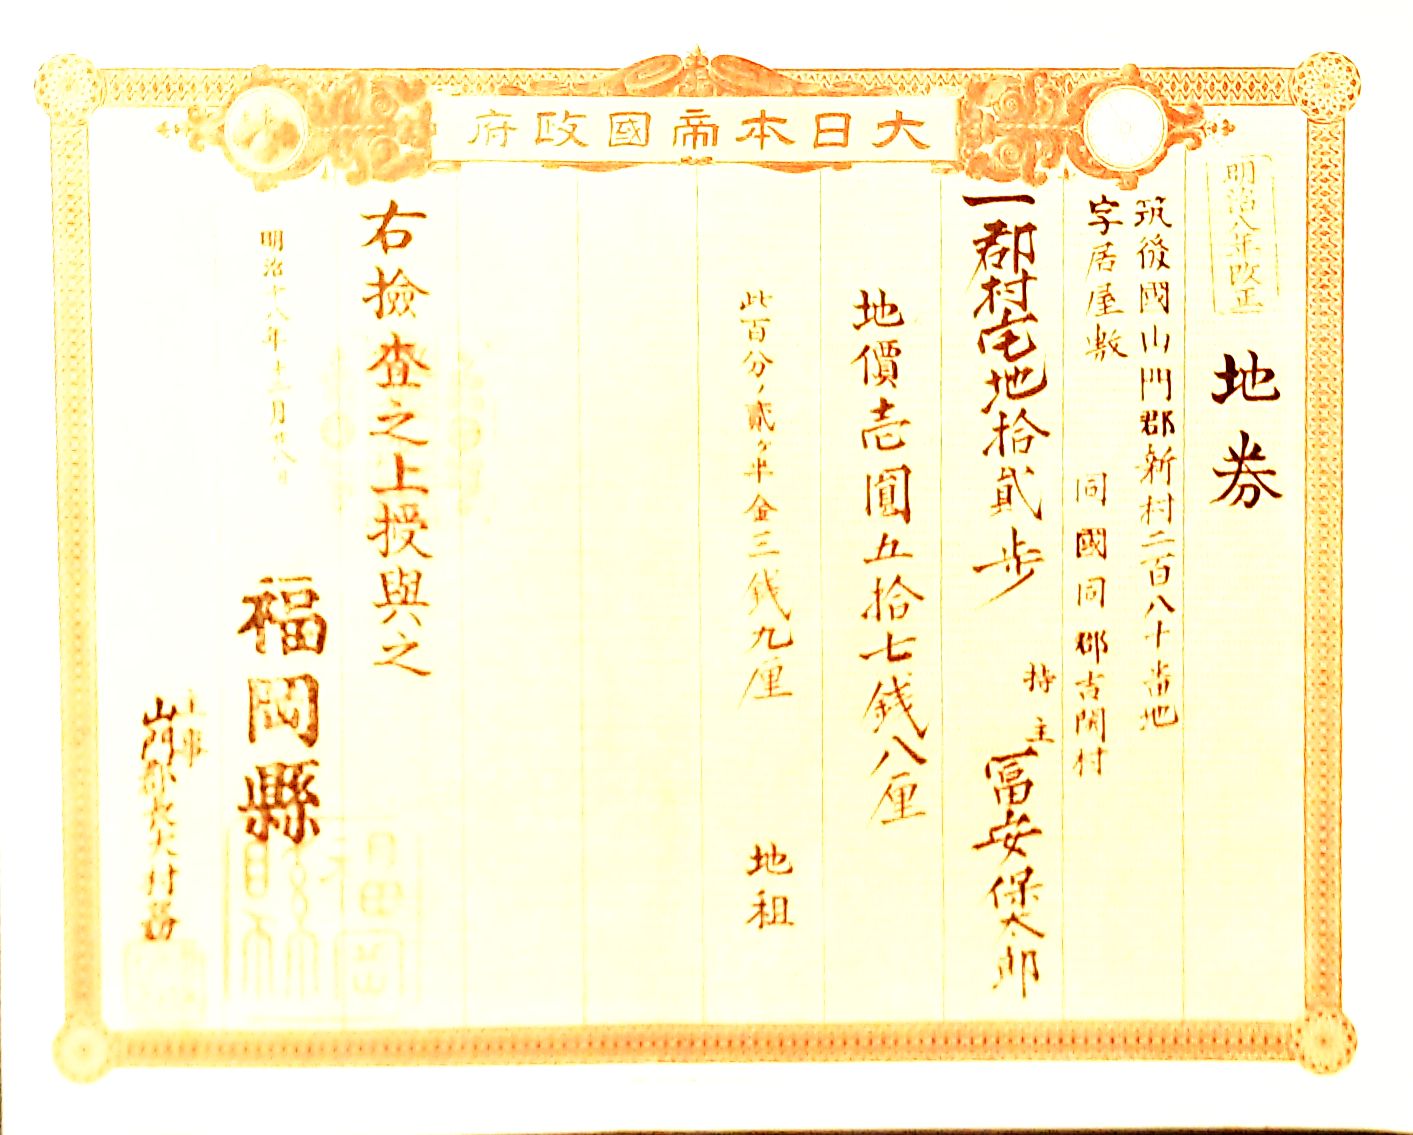 大日本帝國政府
明治八年改正
地券
筑後國山門郡新村二百八十番地
字居屋敷
同國同郡古閑村
一郡村宅地拾貳步
持主
冨安保太郎
地價壱圓五拾七銭八厘
此百分ノ貳ヶ半金三銭九厘
地租
右撿査之上授與之
明治十八年十二月廿八日
福岡縣
山門郡